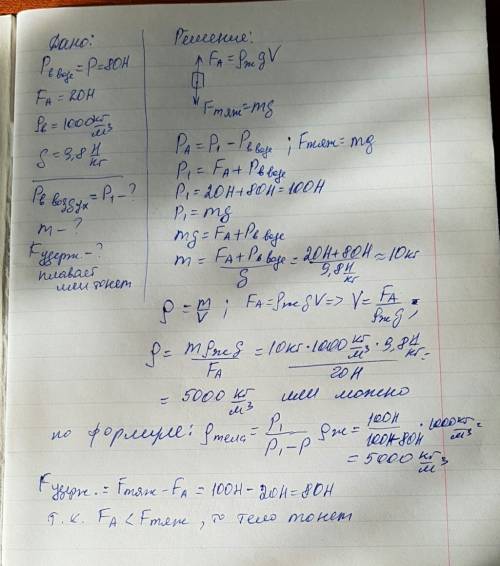 Дано:
P в воде = P = 80Н
F_A = 20Н
ρв = 1000 кг/м³
g = 9,8 Н/кг
P в воздух = P₁ - ?
m - ?
Fудерж. - ?
плавает
или тонет
Решение:
F_A = ρж gV
Fтяж = mg
P_A = P₁ - P в воде ; Fтяж = mg
P₁ = F_A + P в воде
P₁ = 20Н + 80Н = 100Н
P₁ = mg
mg = F_A + P в воде
m = (F_A + P в воде)/g = (20Н + 80Н)/(9,8 Н/кг) ≈ 10кг
ρ = m/V ; F_A = ρж gV => V = F_A/(ρж g) ;
ρ = (mρж g)/F_A = (10кг · 1000 кг/м³ · 9,8 Н/кг)/20Н =
= 5000 кг/м³ или можно
по формуле: ρтела = P₁/(P₁ - P) ρж = 100Н/(100Н - 80Н) · 1000 кг/м³ =
= 5000 кг/м³
Fудерж. = Fтяж - F_A = 100Н - 20Н = 80Н
т.к. F_A < Fтяж, то тело тонет